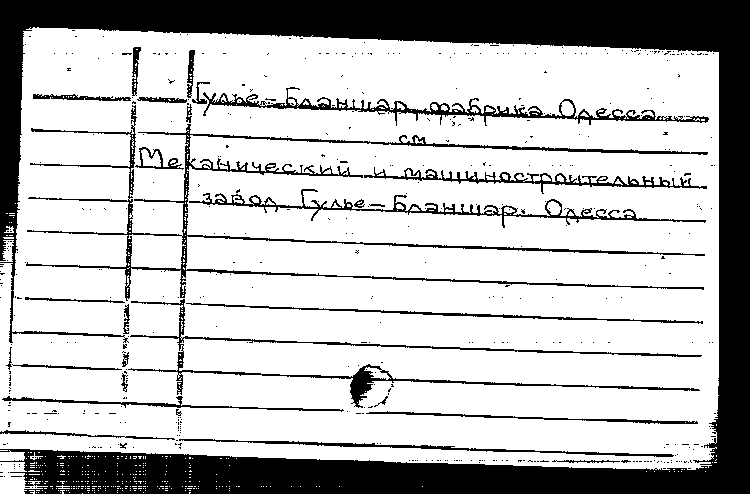 Гулье-Бланшар, фабрика. Одесса
см.
Механический и машиностроительный
завод Гулье-Бланшар. Одесса